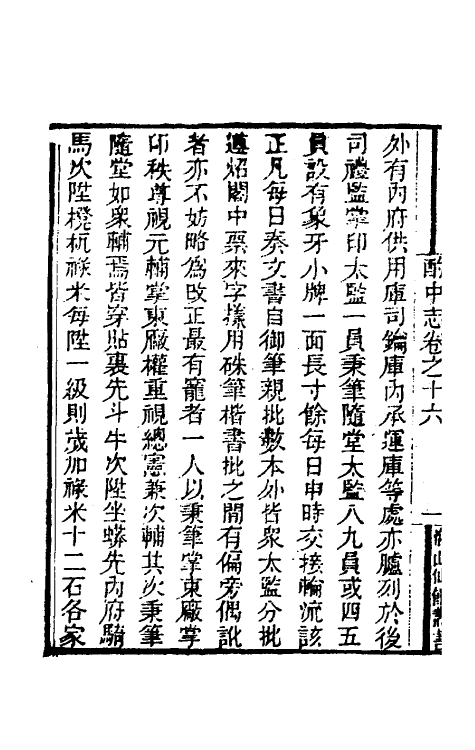 酌中志卷之十六
一
海山仙館叢書
外有內府供用庫司鑰庫內承運庫等處亦臚列於後
司禮監掌印太監一員秉筆隨堂太監八九員或四五
員設有象牙小牌一面長寸餘每日申時交接輪流該
正凡每日奏文書自御筆親批數本外皆衆太監分批
遵炤閣中票來字樣用硃筆楷書批之間有偏旁偶訛
者亦不妨略爲改正最有寵者一人以秉筆掌東廠掌
印秩尊視元輔掌東廠權重視總憲兼次輔其次秉筆
隨堂如衆輔焉皆穿貼裏先斗牛次陞坐蟒先內府騎
馬次陞櫈杌祿米每陞一級則歲加祿米十二石各家